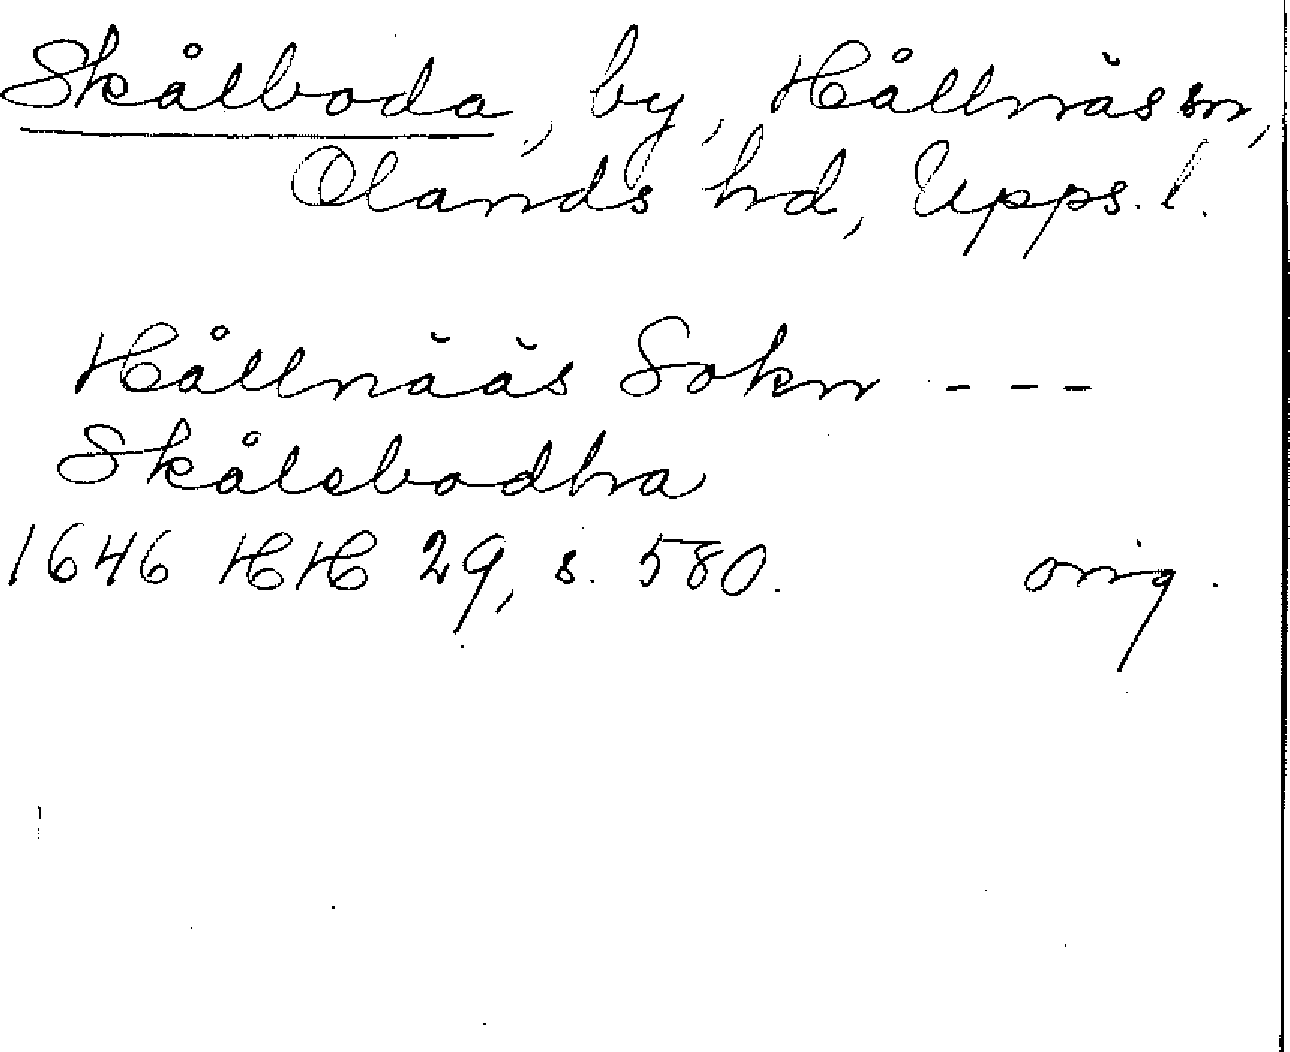 Skålboda, by, Hållnäs sn,
Olands hd, Upps. l.
Hållnääs Sokn - - -
Skålebodha
1646 HH 29, s. 580. orig.